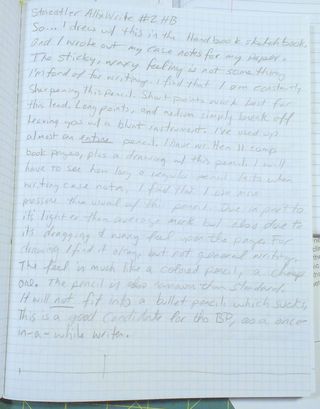 Staedtler AllxWrite #2 HB
So... I drew w/ this in the Handbook sketchbook
and I wrote out my case notes for my paper.
The sticky, waxy feeling is not something
I'm fond of for writing. I find that I am constantly
sharpening this pencil. Short points work best for
this lead. Long points, and medium simply break off
leaving you w/ a blunt instrument. I've used up
almost an entire pencil. I have written 11 comp
book pages, plus a drawing w/ this pencil. I will
have to see how long a regular pencil lasts when
writing case notes. I find that I use more
pressure than usual w/ this pencil. Due in part to
its lighter than average mark but also due to
its dragging & waxy feel upon the page. For
drawing I find it okay, but not general writing.
The feel is much like a colored pencil, a cheap
one. The pencil is narrower than standard.
It will not fit into a bullet pencil which sucks,
This is a good candidate for the BP, as a once-
in-a-while writer.